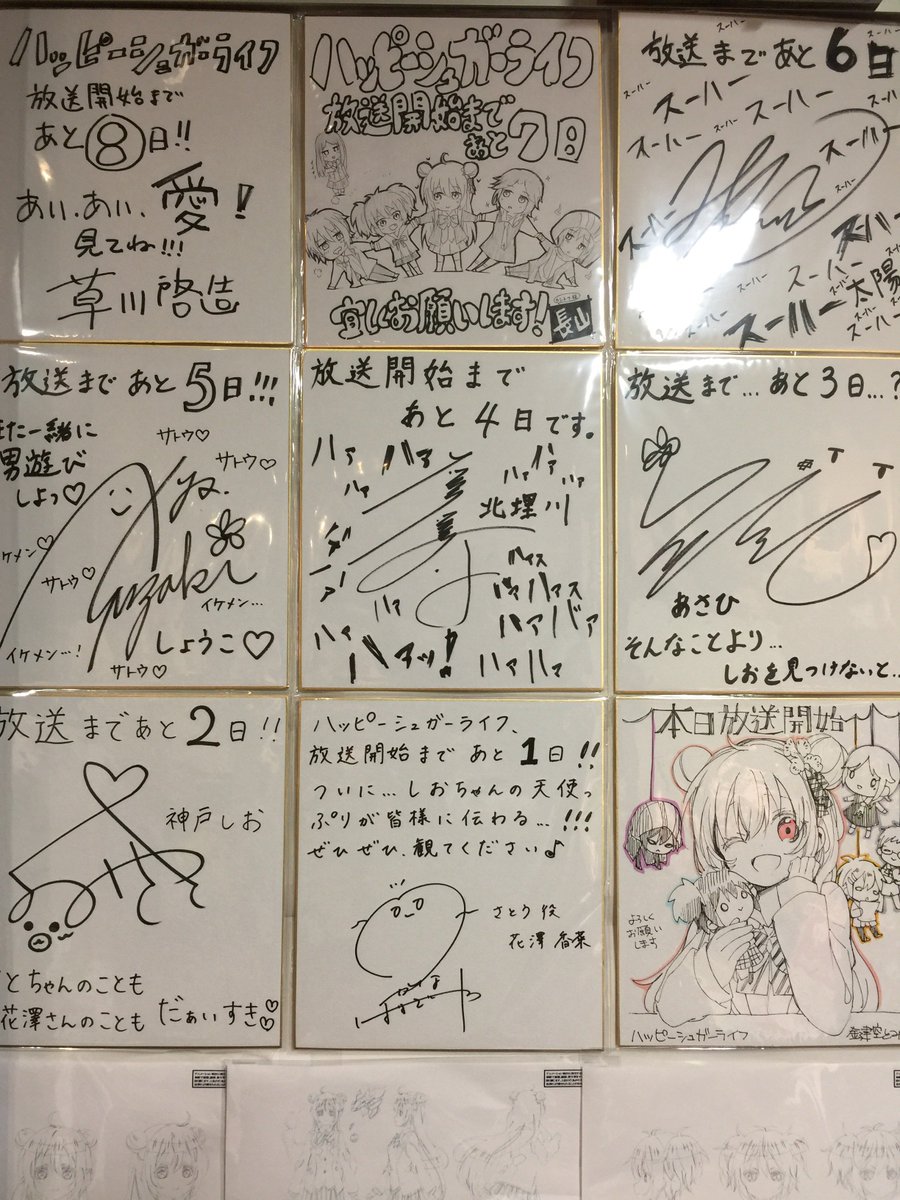 ハッピーシュガーライフ
放送開始まで
あと⑧日!!
あい、あい、愛!
見てね!!!
草川啓造
ハッピーシュガーライフ
放送開始まで
あと7日
宜しくお願いします!
長山
放送まであと6日
スーハー
スーハー
スーハー
スーハー
スーハー
スーハー
スーハー
スーハー
スーハー太陽
放送まであと5日!!!
また一緒に
男遊び
しよっ♡
サトウ♡
サトウ♡
イケメン♡
サトウ♡
イケメン…
イケメン…!
しょうこ♡
サトウ♡
放送開始まで
あと4日です。
ハァ ハァ
ハァ
ハァ
北埋川
ハァ
ハァハァ
ハァッ!
放送まで…あと3日…?
あさひ
そんなことより…
しおを見つけないと…
放送まであと2日!!
神戸しお
とちゃんのことも
花澤さんのことも だぁいすき♡
ハッピーシュガーライフ、
放送開始まで あと1日!!
ついに…しおちゃんの天使っ
ぷりが皆様に伝わる…!!!
ぜひぜひ、観てください♪
さとう役
花澤香菜
本日放送開始
よろしく
お願い
します
ハッピーシュガーライフ